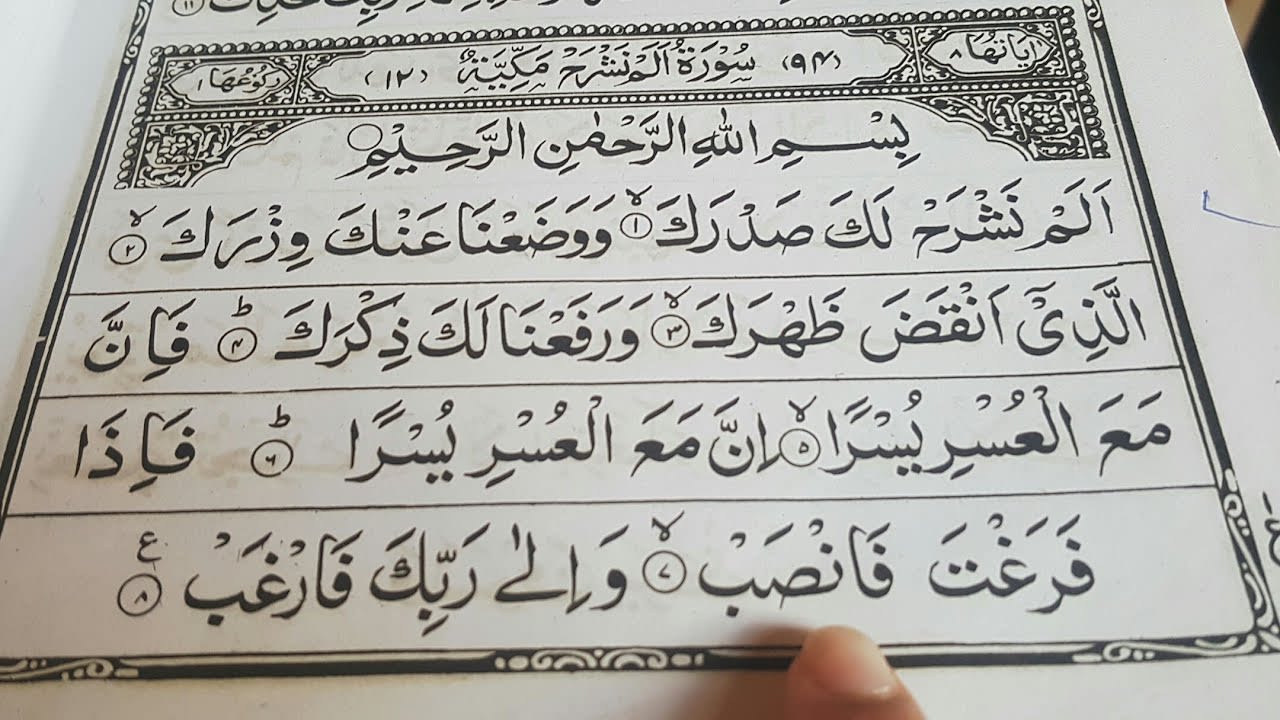 رَبِّكَ فَحَدِّثْ ۝۱۱
اٰيَاتُهَا ۸ (۹۴) سُوْرَةُ اَلَمْ نَشْرَحْ مَكِّيَّةٌ (۱۲) رُكُوْعُهَا ۱
بِسْمِ اللّٰهِ الرَّحْمٰنِ الرَّحِيْمِ ۝
اَلَمْ نَشْرَحْ لَكَ صَدْرَكَ ۙ۝۱ وَوَضَعْنَا عَنْكَ وِزْرَكَ ۙ۝۲
الَّذِىْٓ اَنْقَضَ ظَهْرَكَ ۙ۝۳ وَرَفَعْنَا لَكَ ذِكْرَكَ ؕ۝۴ فَاِنَّ
مَعَ الْعُسْرِ يُسْرًا ۙ۝۵ اِنَّ مَعَ الْعُسْرِ يُسْرًا ؕ۝۶ فَاِذَا
فَرَغْتَ فَانْصَبْ ۙ۝۷ وَاِلٰى رَبِّكَ فَارْغَبْ ۝۸ ع